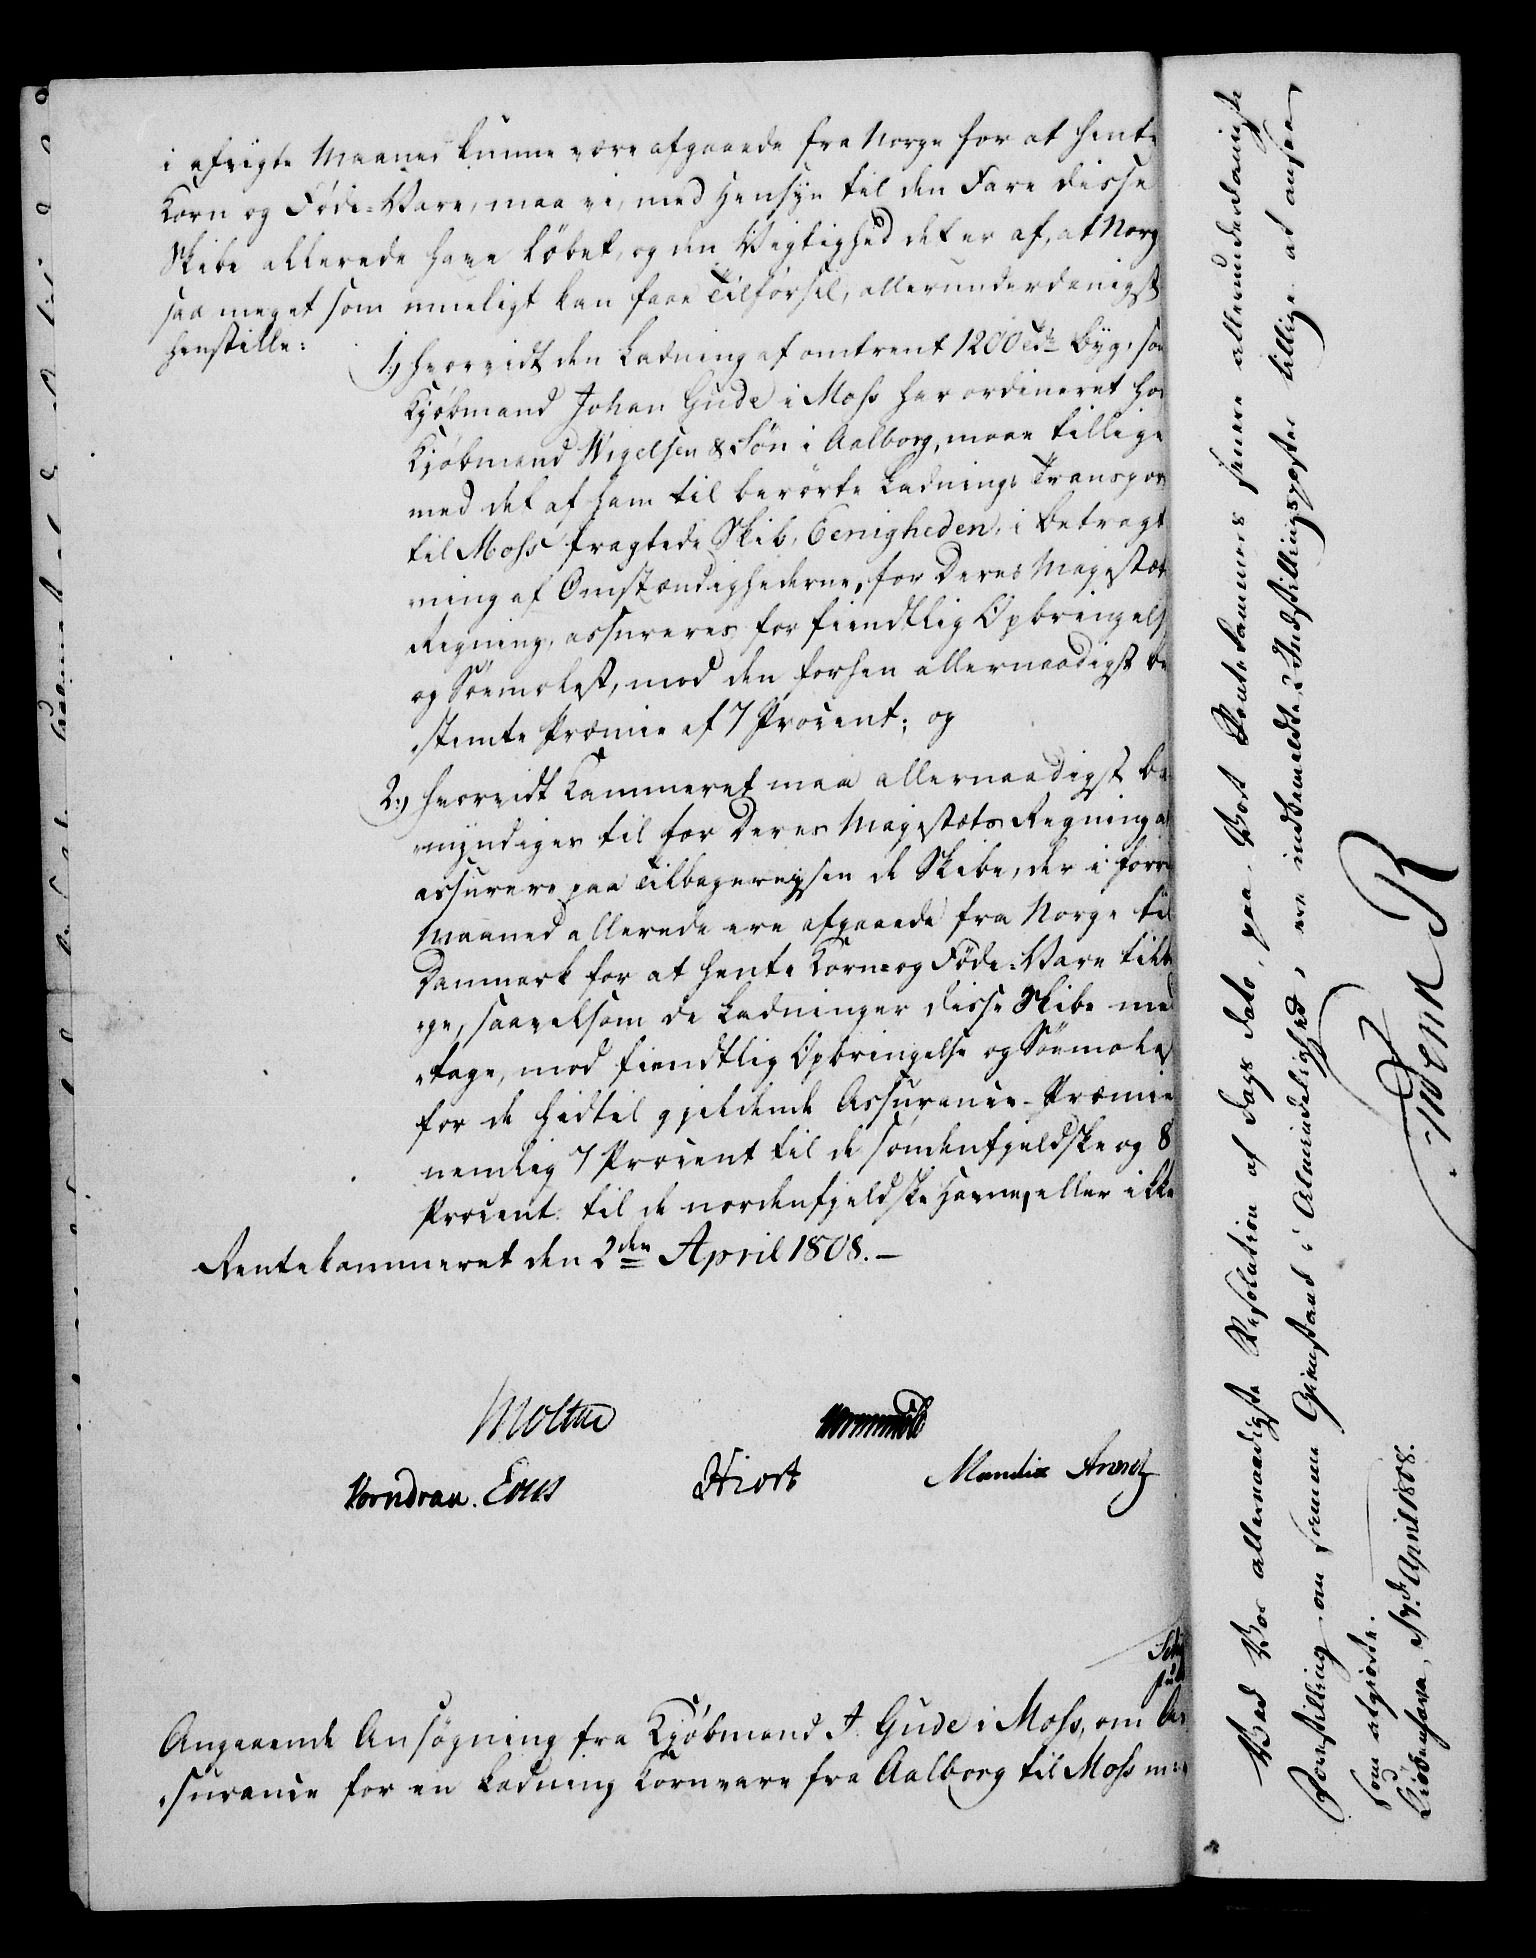 i afvigte Maaned kunne være afgaaede fra Norge for at hente
Korn og Føde-Vare, maa vi, med Hensyn til den Fare disse
Skibe allerede have løbet, og den Vigtighed det er af, at Norg
saa meget som mueligt kan faae Tilførsel, allerunderdanigst
henstille:
1.) hvorvidt den Ladning af omtrent 1200 Tdr Byg, som
Kjøbmand Johan Gude i Moss har ordineret hos
Kjøbmand Wigelsen & Søn i Aalborg, maae tillige
med det af ham til berørte Ladnings Transport
til Moss fragtede Skib, Eenigheden, i Betragt
ning af Omstændighederne, for Deres Majestæts
Regning, assureres for fiendtlig Opbringelse
og Søemolest, mod den forhen allernaadigst be
stemte Præmie af 7 Procent; og
2.) hvorvidt Kammeret maa allernaadigst be
myndiges til for Deres Majestæts Regning at
assurere paa Tilbagereysen de Skibe, der i forrige
Maaned allerede ere afgaaede fra Norge til
Danmark for at hente Korn- og Føde-Vare tilba
ge, saavelsom de Ladninger disse Skibe med
tage, mod fiendtlig Opbringelse og Søemolest
for de hidtil gjeldende Assurance-Præmie
nemlig 7 Procent til de søndenfjeldske og 8
Procent til de nordenfjeldske Havne, eller ikke
Rentekammeret den 2den April 1808.
Moltke
Vorndran. Hiort Mandix
Angaaende Ansøgning fra Kjøbmand J. Gude i Moss, om As
surance for en Ladning Kornvare fra Aalborg til Moss m:
Ved Vor allernaadigste Resolution af Dags Dato, paa Vort Rentekammers senere allerunderdanigste
Forestilling om samme Gienstand i Almindelighed, ere indbemeldte 2 Indstillingsposter tillige at ansee
som afgjorte.
Kiøbenhavn, d. April 1808.
R